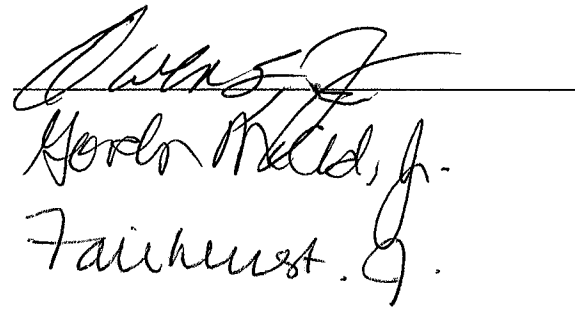 Owens, J.
Gordon McCloud, J.
Fairhurst. J.